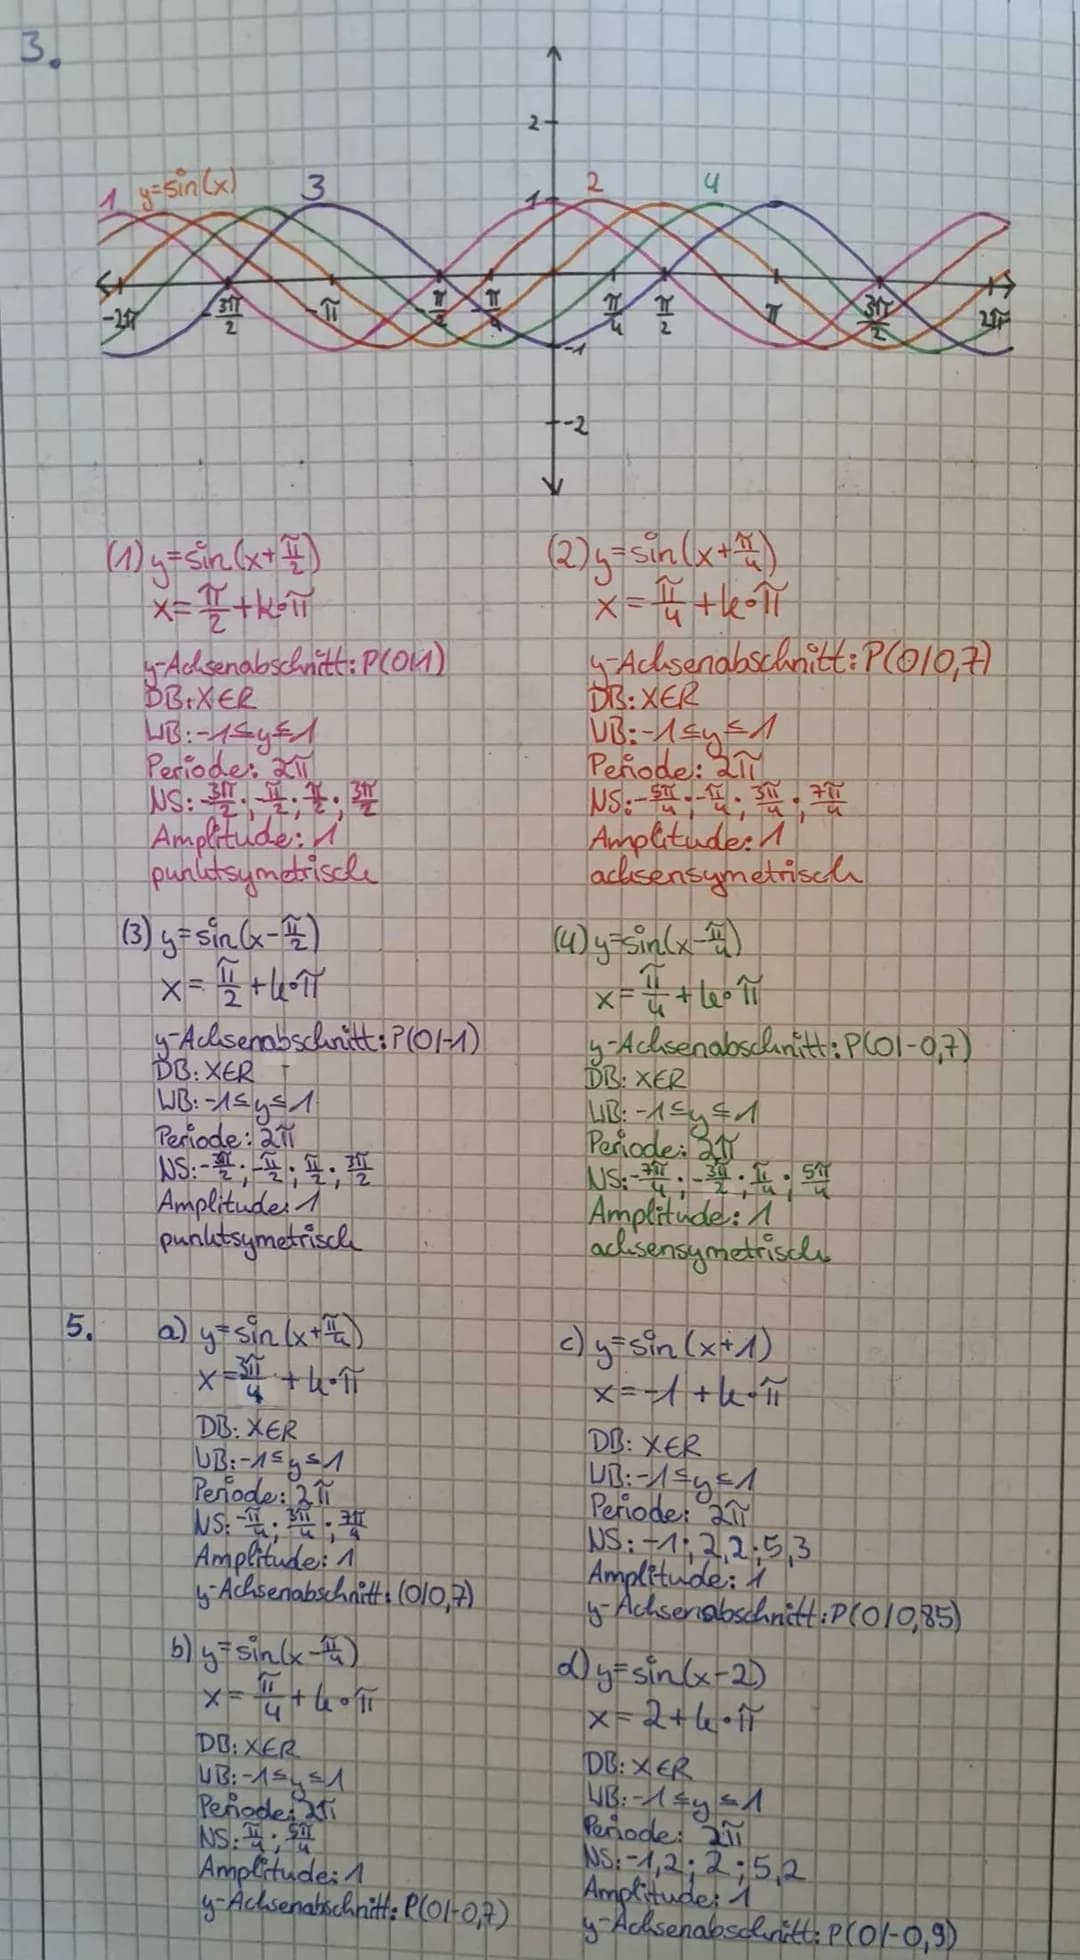 3.
2
1 y=sin(x) 3 1 2 4
-2π -3π/2 -π -π/2 -π/4 π/4 π/2 π 3π/2 2π
-1
-2
(1) y=sin(x+π/2)
x=π/2+k·π
y-Achsenabschnitt: P(0|1)
DB: XєR
WB: -1≤y≤1
Periode: 2π
NS: -3π/2; -π/2; π/2; 3π/2
Amplitude: 1
punktsymetrisch
(2) y=sin(x+π/4)
x=π/4+k·π
y-Achsenabschnitt: P(0|0,7)
DB: XєR
WB: -1≤y≤1
Periode: 2π
NS: -5π/4; -π/4; 3π/4; 7π/4
Amplitude: 1
achsensymetrisch
(3) y=sin(x-π/2)
x=π/2+k·π
y-Achsenabschnitt: P(0|-1)
DB: XєR
WB: -1≤y≤1
Periode: 2π
NS: -3π/2; -π/2; π/2; 3π/2
Amplitude: 1
punktsymetrisch
(4) y=sin(x-π/4)
x=π/4+k·π
y-Achsenabschnitt: P(0|-0,7)
DB: XєR
WB: -1≤y≤1
Periode: 2π
NS: -7π/4; -3π/2; π/4; 5π/4
Amplitude: 1
achsensymetrisch
5. a) y=sin(x+π/4)
x=3π/4+k·π
DB: XєR
WB: -1≤y≤1
Periode: 2π
NS: -π/4; 3π/4; 7π/4
Amplitude: 1
y-Achsenabschnitt: (0|0,7)
c) y=sin(x+1)
x=-1+k·π
DB: XєR
WB: -1≤y≤1
Periode: 2π
NS: -1; 2,2; 5,3
Amplitude: 1
y-Achsenabschnitt: P(0|0,85)
b) y=sin(x-π/4)
x=π/4+k·π
DB: XєR
WB: -1≤y≤1
Periode: 2π
NS: π/4; 5π/4
Amplitude: 1
y-Achsenabschnitt: P(0|-0,7)
d) y=sin(x-2)
x=2+k·π
DB: XєR
WB: -1≤y≤1
Periode: 2π
NS: -1,2; 2; 5,2
Amplitude: 1
y-Achsenabschnitt: P(0|-0,9)